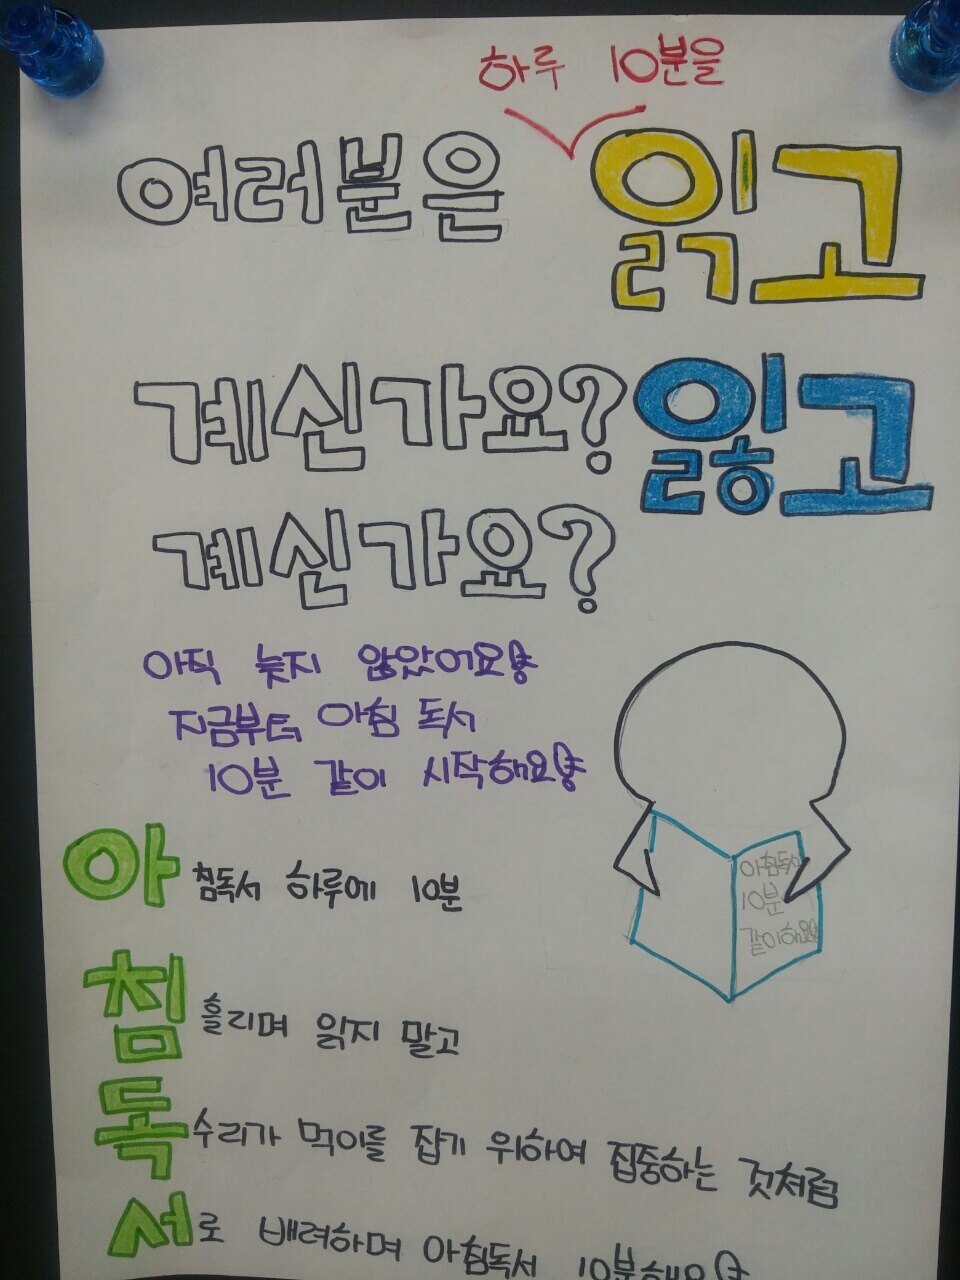 하루 10분을
여러분은 읽고
계신가요? 잃고
계신가요?
아직 늦지 않았어요용
지금부터 아침 독서
10분 같이 시작해요용
아침독서 하루에 10분
침흘리며 읽지 말고
독수리가 먹이를 잡기 위하여 집중하는 것처럼
서로 배려하며 아침독서 10분해요용
아침독서
10분
같이해요용